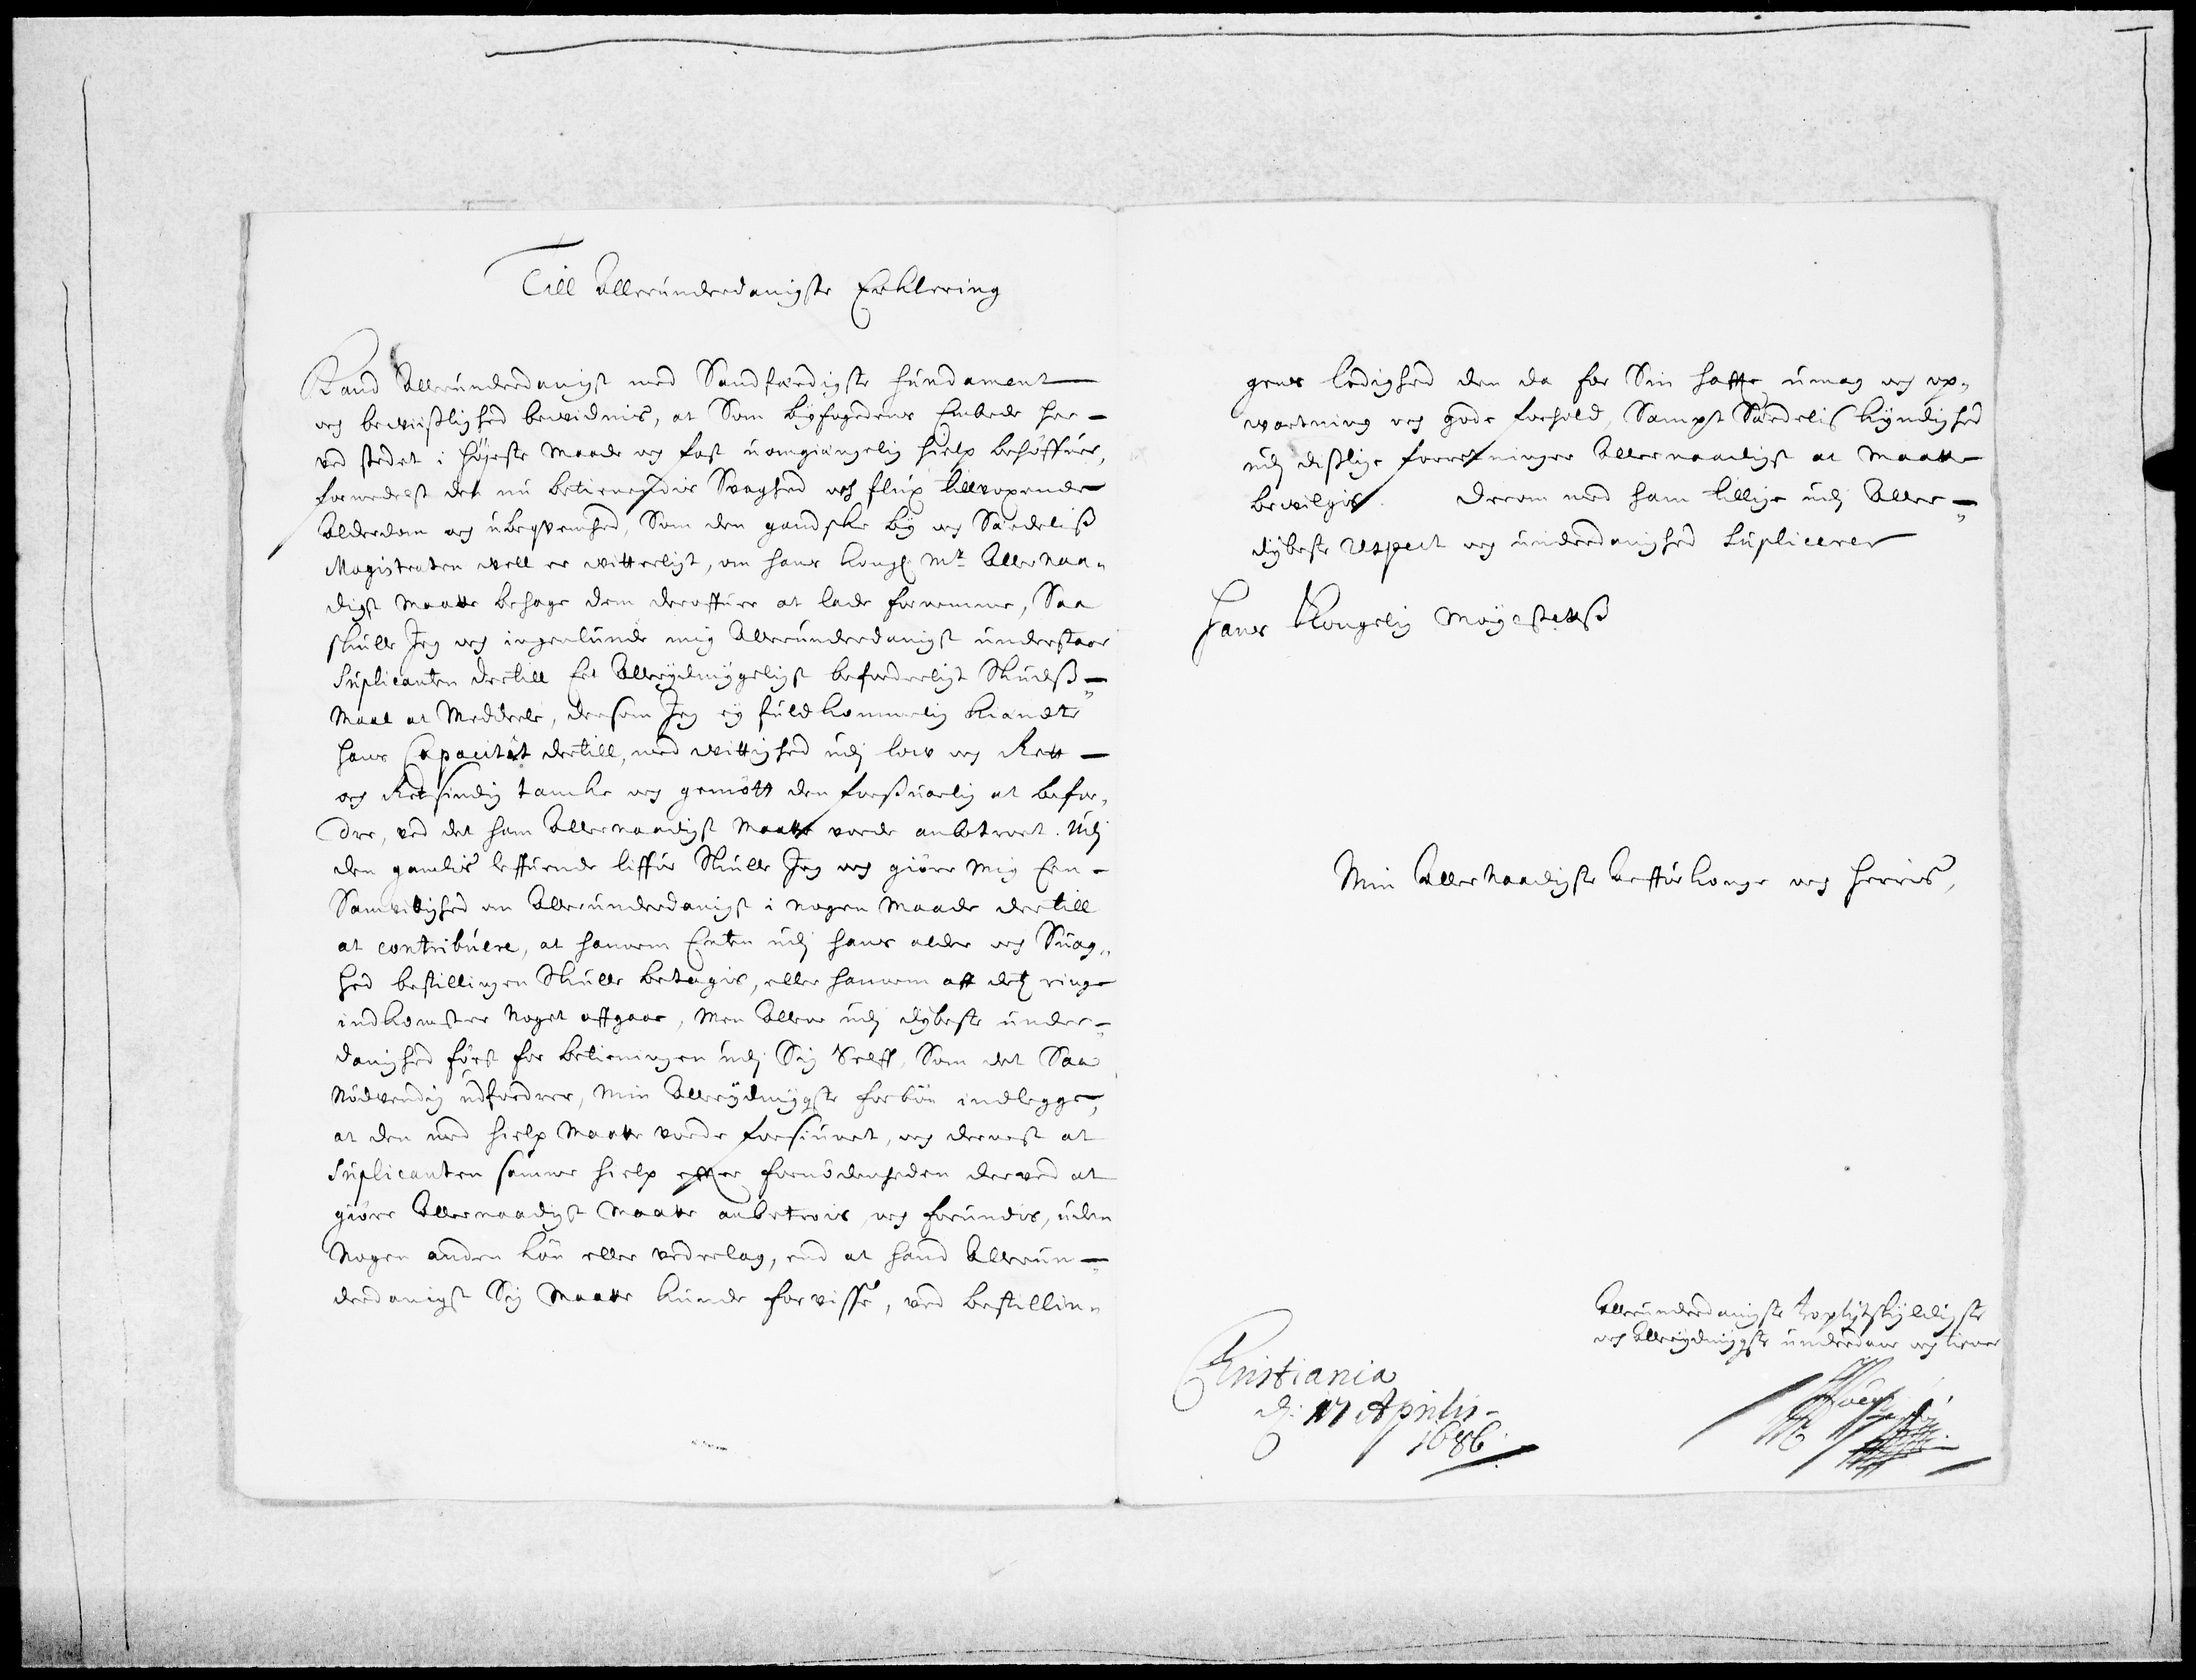 Till Allerunderdanigste Erklering
Kand Allerunderdanigst med Sandfærdigste fundament
och bevißlighed bevidnis, at Som byfogdens Embede her-
ved stedet i høyeste Maade og fast uomgiengelig hielp behøffuer,
formedelst det nu betienendis Svaghed och flux tilltagende
Alderdom og ubeqvemhed, Som den gandske by og Særdeliß
Magistraten vell er vitterligt, om hans Kongl: Mt: Allernaa„
digst Maatte behage dem deroffuer at lade fornemme, Saa
skulle Jeg og ingenlunde mig Allerunderdanigst understaae
Supplicanten dertill Et Allerydmygeligst beforderligt Skudß-
maal at Meddeele, dersom Jeg ey fuldkommelig kiendte
hans Capacitet dertill, med vittighed udj lov og Rett-
og Retsindig tancke og gemøtt den forsuarlig at befor„
dre, ved det ham Allernaadigst Maatte vorde anbetroet. Udj
den gamlis leffuende liffue Skulle Jeg og giøre mig Een-
Samvittighed om Allerunderdanigst i nogen Maade dertill
at contribuere, at hannem Enten udj hans alder og Suag„
hed bestillingen Skulle betagis, eller hannem aff detz ringe
indkomster Noget affgaae, Men Allene udj dybeste under-
danighed først for betieningen udj Sig Selff, Som det Saa
Nødvendig udfordrer, min Allerydmygste forbøn indlegge,
at den med hielp Maatte vorde forsiunet, og dernest at
Suplicanten samme hielp efter fornødenheden derved at
giøre Allernaadigst Maatte anbetrois, og forundis, uden
Nogen anden Løn eller vederlag, end at hand Allerun-
derdanigst Sig Maatte kunde forvisse, ved bestillin„
gens ledighed den da for Sin hafte umag og op„
vartning og gode forhold, Sampt Særdelis kyndighed
udj dißlige forretninger Allernaadigst at Maatte
bevilgis. Derom med ham tillige udj Aller-
dybeste respect og underdanighed Suplicerer
Hans Kongelig Mayestettß
Min Allernaadigste Arffue Konge og Herris,
Allerunderdanigste troplichtskyldigste
och Allerydmygste underdan og tiener
Christiania
d: 17 Aprilis
1686